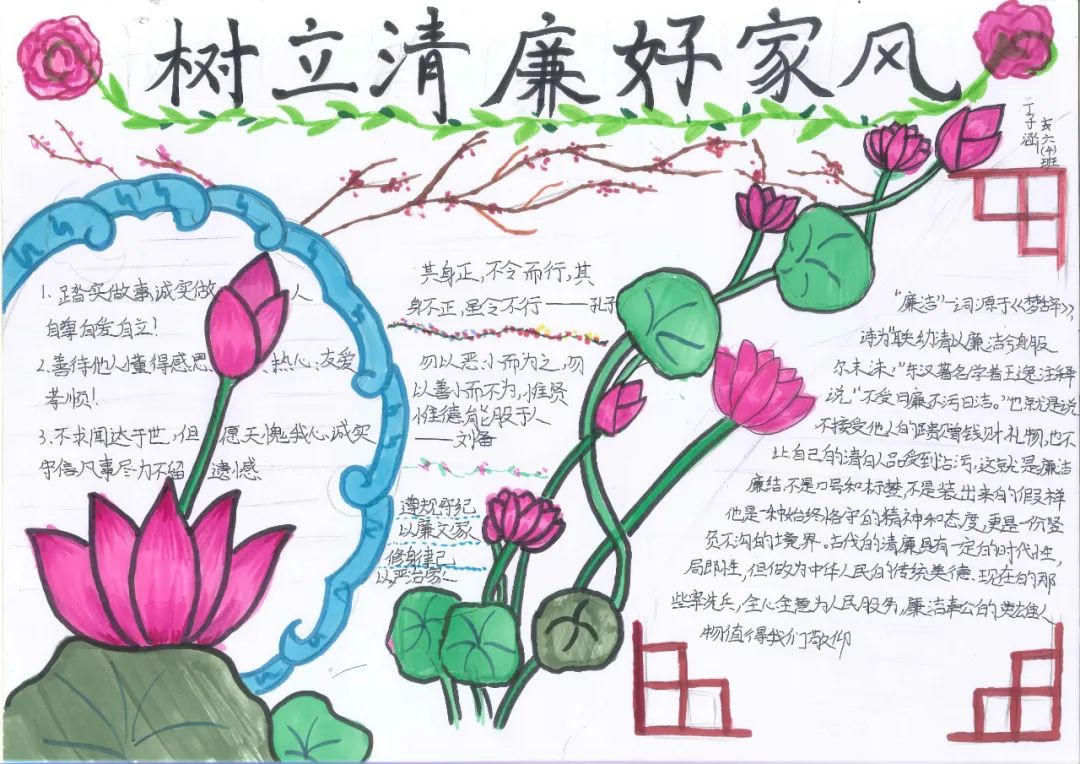 树立清廉好家风
丁子涵
六(4)班
1. 踏实做事诚实做人
自尊自爱自立!
2. 善待他人懂得感恩热心友爱
孝顺!
3. 不求闻达于世,但愿无愧我心诚实
守信凡事尽力不留遗憾
其身正,不令而行,其
身不正,虽令不行——孔子
勿以恶小而为之,勿
以善小而不为,惟贤
惟德,能服于人
——刘备
遵规守纪
以廉文家
修身律己
以严治家!
“廉洁”一词源于《楚辞》,
诗为“联幼清以廉洁兮身服
尔未沫。”东汉著名学者王逸注释
说,“不受曰廉不污曰洁。”也就是说
不接受他人的馈赠钱财礼物,也不
让自己的清白人品受到沾污,这就是廉洁
廉结,不是口号和标榜,不是装出来的假样
他是一种始终恪守的精神和态度,更是一份坚
贞不沟的境界。古代的清廉具有一定的时代性,
局即性,但做为中华人民的传统美德.现在的那
些率先兵,全心全意为人民服务,廉洁奉公的人
物值得我们敬仰